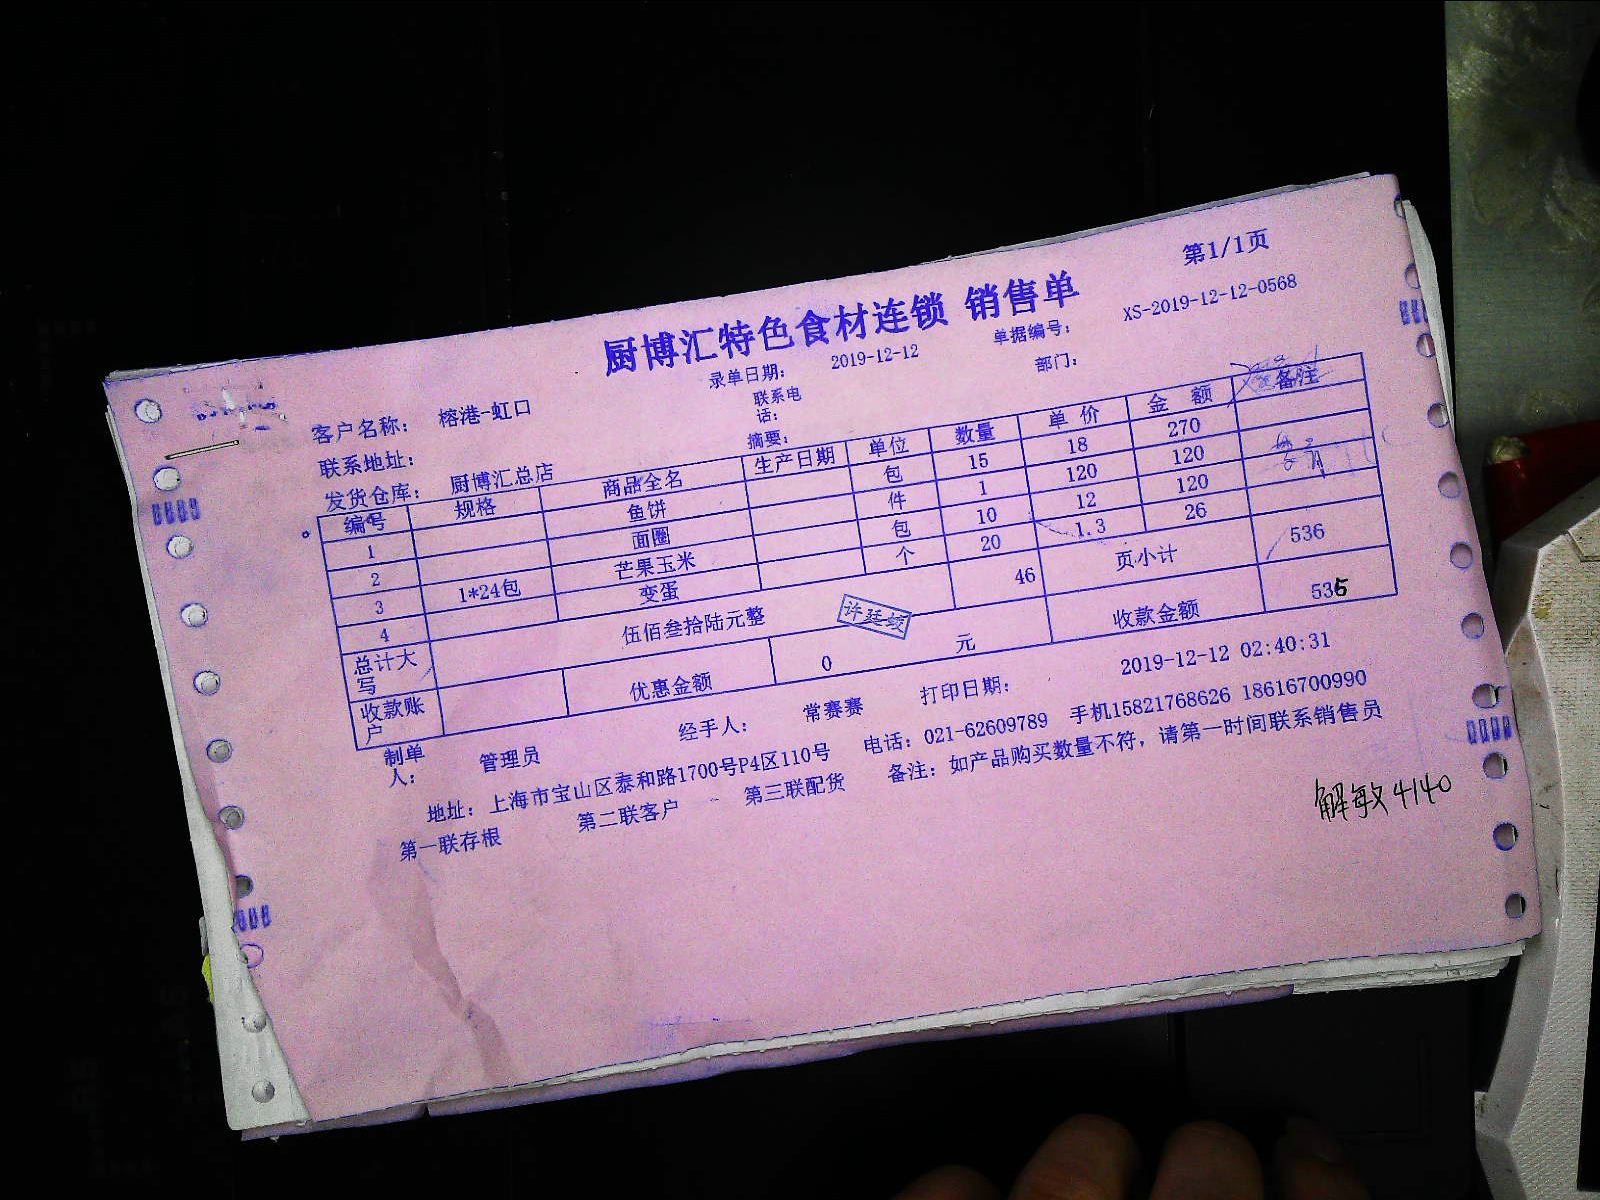 第1/1页
厨博汇特色食材连锁 销售单
录单日期： 2019-12-12 单据编号： XS-2019-12-12-0568
客户名称： 榕港-虹口 联系电话： 部门：
联系地址： 摘要：
发货仓库： 厨博汇总店
编号 规格 商品全名 生产日期 单位 数量 单价 金额 备注
1 鱼饼 包 15 18 270
2 面圈 件 1 120 120
3 1*24包 芒果玉米 包 10 12 120
4 变蛋 个 20 1.3 26
总计大写 伍佰叁拾陆元整 46 页小计 536
许廷蛟
收款账户 优惠金额 0 元 收款金额 536
制单人： 管理员 经手人： 常赛赛 打印日期： 2019-12-12 02:40:31
地址：上海市宝山区泰和路1700号P4区110号 电话：021-62609789 手机15821768626 18616700990
第一联存根 第二联客户 第三联配货 备注：如产品购买数量不符，请第一时间联系销售员
解敏4140